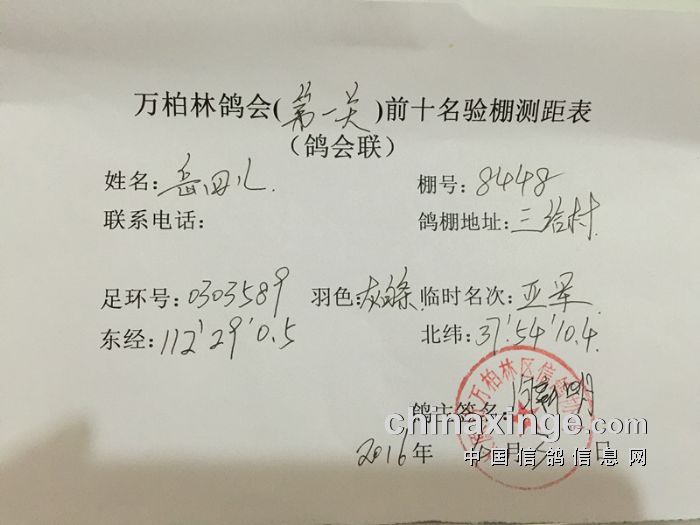 万柏林鸽会(第一关)前十名验棚测距表
(鸽会联)
姓名:岳四儿 棚号:8448
联系电话: 鸽棚地址:三给村
足环号:0303589 羽色:灰绦 临时名次:亚军
东经:112'29'0.5 北纬:37'54'10.4
鸽主签名:
万柏林区信鸽
chinaxinge.com
2016年 月 日
中国信鸽信息网